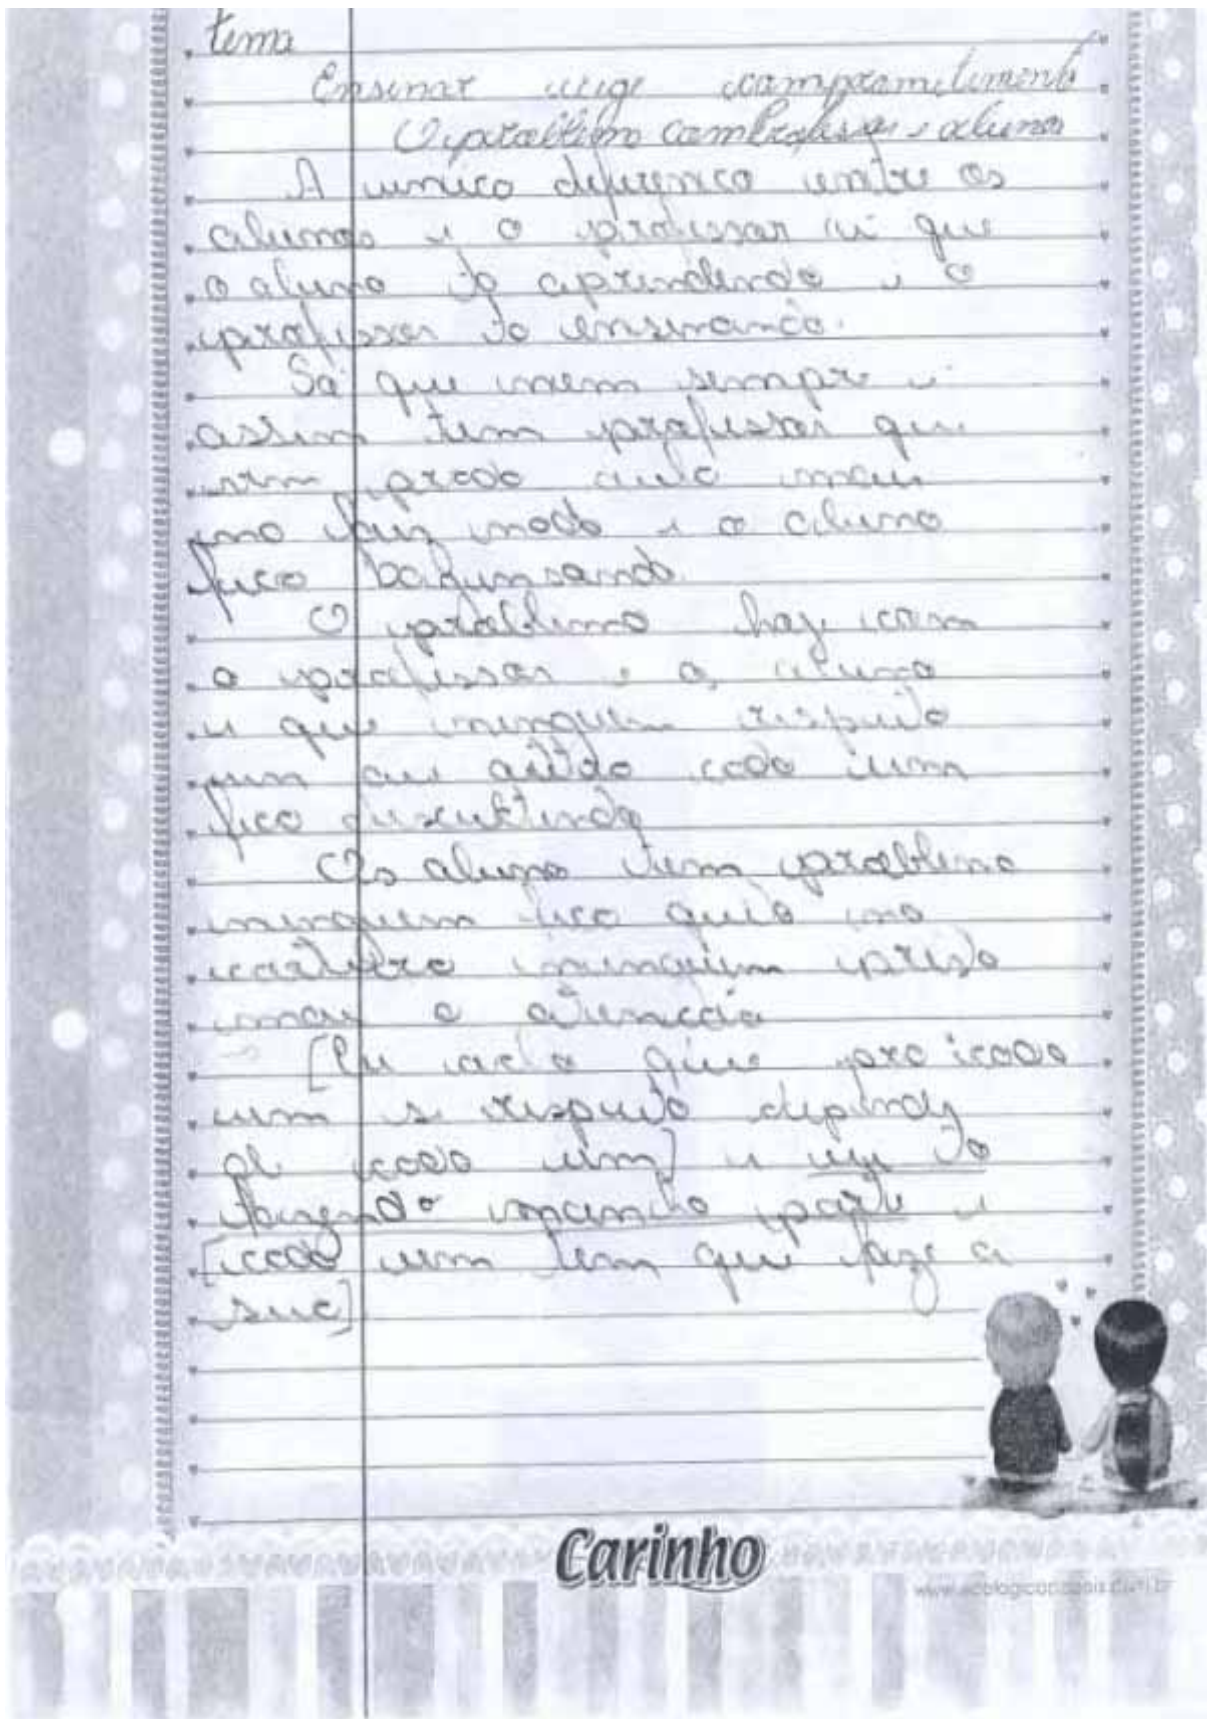 tema
Ensinar exige comprometimento
O problem com professor e alunos
A unico diferença entre os
alunos e o professor é que
o aluno ta aprendendo e o
professor ta ensinando.
Só que nem sempre é
assim tem professor que
vem prada aula mais
não faiz nada e o aluno
fica bagunsando.
O problema hoje com
o professor e os aluno
e que ninguem respeita
um au outro cada um
fica discutindo
Os aluno tem problema
ninguem fica quieto na
carteira ninguem presta
mais a atencão
[Eu acho que pra cada
um se respeita depende
de cada um] e eu to
fazendo minha parte e
[cada um tem que faze a
sua]
Carinho